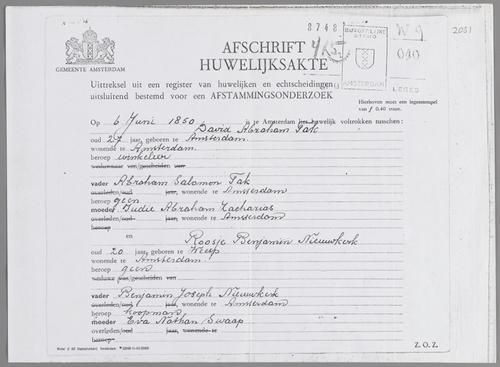 8748
2051
W 9
BURGERLIJKE STAND
AMSTERDAM
LEGES
GEMEENTE AMSTERDAM
AFSCHRIFT
HUWELIJKSAKTE
Uittreksel uit een register van huwelijken en echtscheidingen
uitsluitend bestemd voor een AFSTAMMINGSONDERZOEK
Hierboven moet een legesstempel
van f 0.40 staan.
Op 6 Juni 1850 is te Amsterdam het huwelijk voltrokken tusschen:
David Abraham Tak
oud 27 jaar, geboren te Amsterdam.
wonende te Amsterdam.
beroep winkelier
weduwnaar van/gescheiden van
vader Abraham Salamon Tak
overleden/oud jaar, wonende te Amsterdam
beroep geen
moeder Judic Abraham Zacharias
overleden/oud jaar, wonende te Amsterdam
beroep
en
Roosje Benjamin Nieuwkerk
oud 20 jaar, geboren te Weesp
wonende te Amsterdam.
beroep geen
weduwe van/gescheiden van
vader Benjamin Joseph Nieuwkerk
overleden/oud jaar, wonende te Amsterdam
beroep koopman
moeder Eva Nathan Swaap
overleden/oud jaar, wonende te
beroep
Z.O.Z.